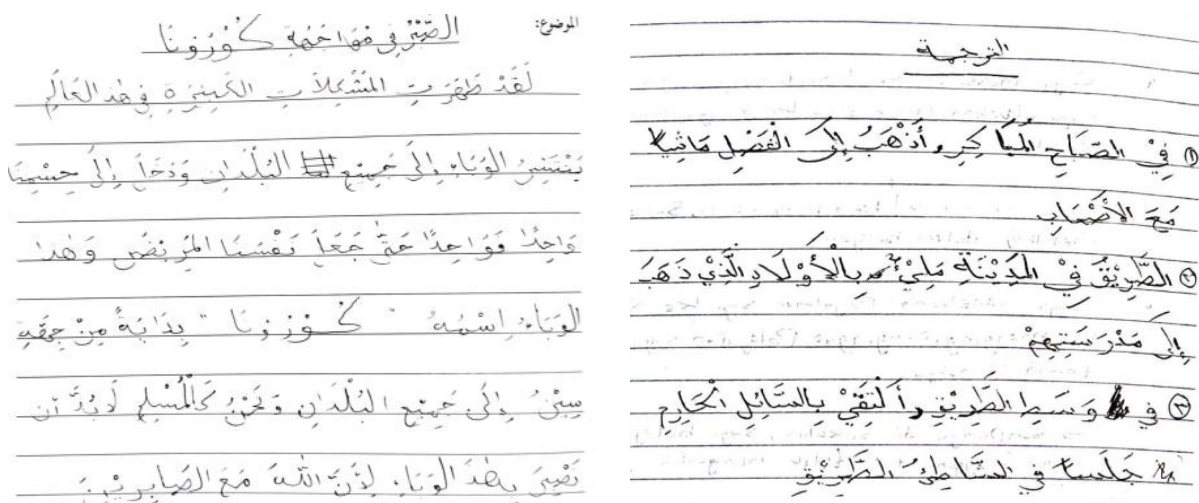 الموضوع: الصَّبْرُ فِي مُوَاجَهَةِ كُوْرُوْنَا
لَقَدْ ظَهَرَتِ المُشْكِلَاتِ الكَبِيْرَةِ فِي هٰذ العَالَمِ
يَنْتَشِرُ الوَبَاءِ إِلَى جَمِيْعِ البُلْدَانِ وَدَخَلَ إِلَى جِسْمِنَا
وَاحِدًا فَوَاحِدًا حَتَّى جَعَلَ نَفْسَنَا المَرِيْضَ وَهٰذا
الوَبَاءِ اِسْمُهُ " كُوْرُوْنَا " بِدَايَةً مِنْ
إِلَى جَمِيْعِ البُلْدَانِ وَنَحْنُ كَالْمُسْلِمِ لَابُدَّ أن
نَصْبِرَ بِهٰذ الوَبَاءِ لِأَنَّ اللّٰهَ مَعَ الصَّابِرِيْنَ
الترجمة
١ فِيْ الصَّبَاحِ المُبَاكِرِ، أَذْهَبُ إِلَى الْفَصْلِ مَاشِيًا
مَعَ الأَصْحَابِ
٢ الطَّرِيْقُ فِيْ المَدِيْنَةِ مَلِيْءٌ بِالْأَوْلَادِ الَّذِيْ ذَهَبَ
إِلَى مَدْرَسَتِهِمْ
٣ في وَسَطِ الطَّرِيْقِ، أَلْتَقِيْ بِالسَّائِلِ
جَلَسَا فِي الشَّاطِئِ الطَّرِيْقِ